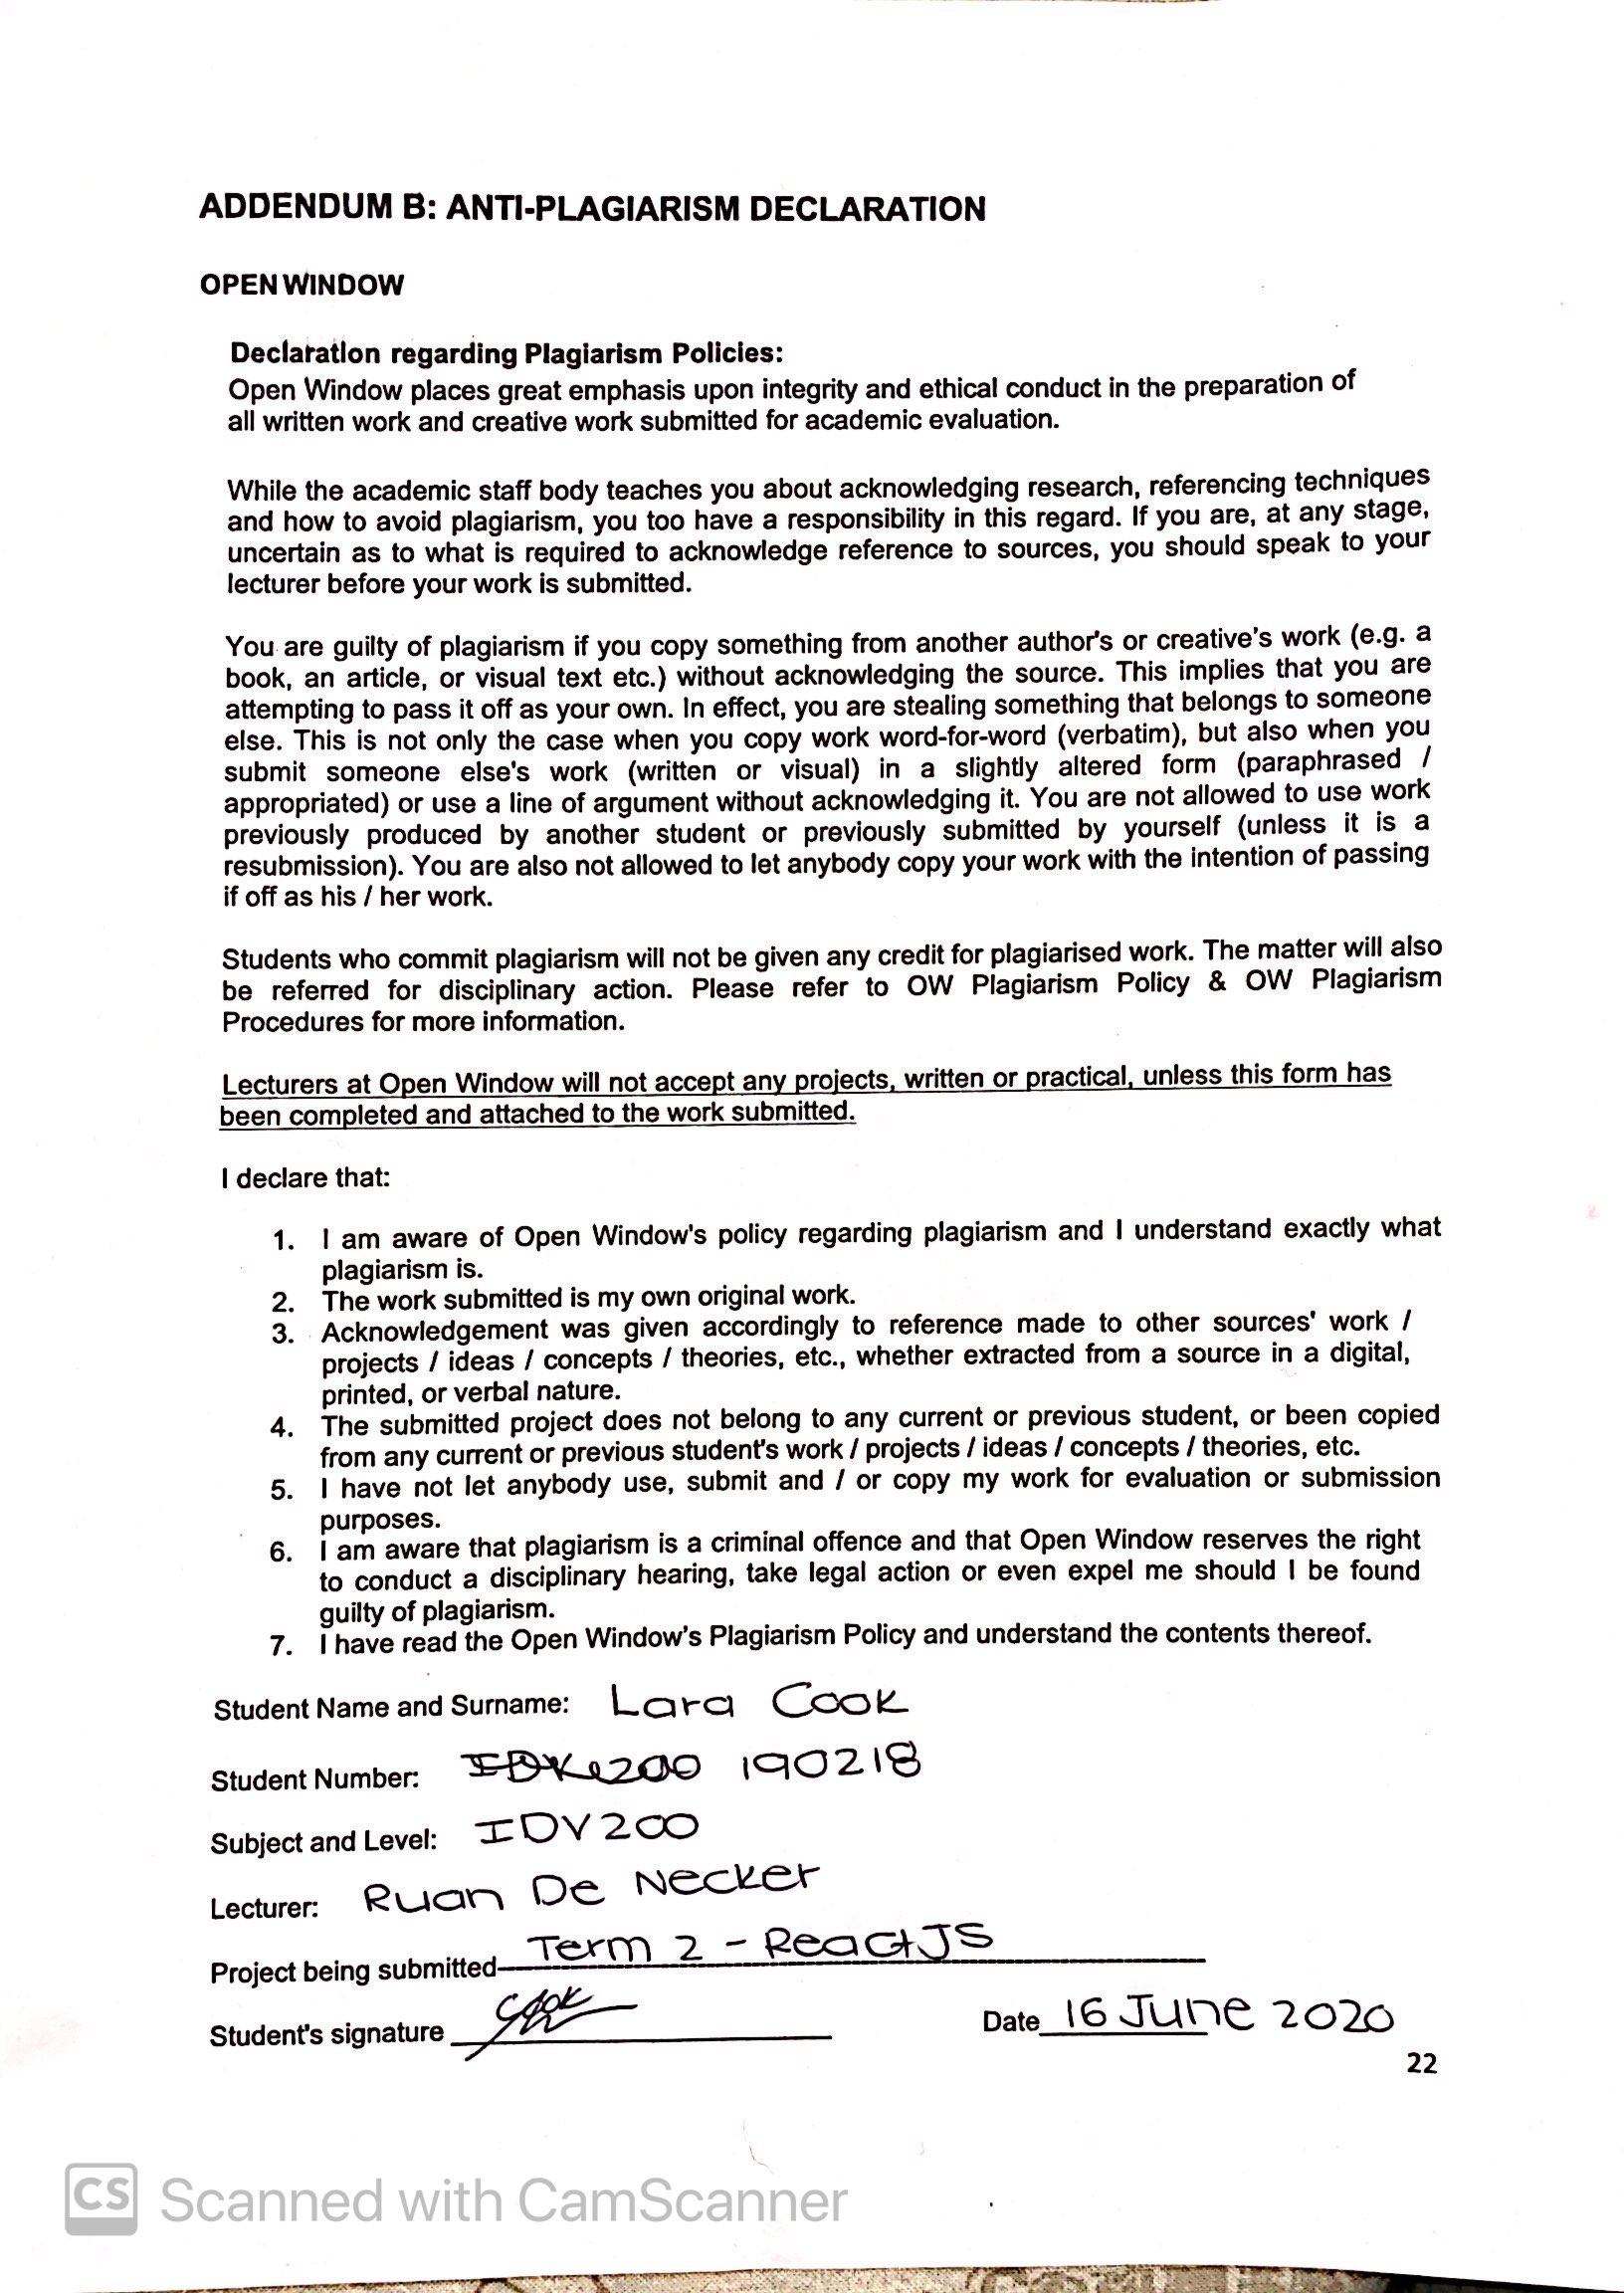 ADDENDUM B: ANTI-PLAGIARISM DECLARATION
OPEN WINDOW
Declaration regarding Plagiarism Policies:
Open Window places great emphasis upon integrity and ethical conduct in the preparation of
all written work and creative work submitted for academic evaluation.
While the academic staff body teaches you about acknowledging research, referencing techniques
and how to avoid plagiarism, you too have a responsibility in this regard. If you are, at any stage,
uncertain as to what is required to acknowledge reference to sources, you should speak to your
lecturer before your work is submitted.
You are guilty of plagiarism if you copy something from another author's or creative's work (e.g. a
book, an article, or visual text etc.) without acknowledging the source. This implies that you are
attempting to pass it off as your own. In effect, you are stealing something that belongs to someone
else. This is not only the case when you copy work word-for-word (verbatim), but also when you
submit someone else's work (written or visual) in a slightly altered form (paraphrased /
appropriated) or use a line of argument without acknowledging it. You are not allowed to use work
previously produced by another student or previously submitted by yourself (unless it is a
resubmission). You are also not allowed to let anybody copy your work with the intention of passing
if off as his / her work.
Students who commit plagiarism will not be given any credit for plagiarised work. The matter will also
be referred for disciplinary action. Please refer to OW Plagiarism Policy & OW Plagiarism
Procedures for more information.
Lecturers at Open Window will not accept any projects, written or practical, unless this form has
been completed and attached to the work submitted.
I declare that:
1. I am aware of Open Window's policy regarding plagiarism and I understand exactly what
plagiarism is.
2. The work submitted is my own original work.
3. Acknowledgement was given accordingly to reference made to other sources' work /
projects / ideas / concepts / theories, etc., whether extracted from a source in a digital,
printed, or verbal nature.
4. The submitted project does not belong to any current or previous student, or been copied
from any current or previous student's work / projects / ideas / concepts / theories, etc.
5. I have not let anybody use, submit and / or copy my work for evaluation or submission
purposes.
6. I am aware that plagiarism is a criminal offence and that Open Window reserves the right
to conduct a disciplinary hearing, take legal action or even expel me should I be found
guilty of plagiarism.
7. I have read the Open Window's Plagiarism Policy and understand the contents thereof.
Student Name and Surname: Lara Cook
Student Number: 190218
Subject and Level: IDV200
Lecturer: Ruan De Necker
Project being submitted Term 2 - ReactJS
Student's signature Date 16 June 2020
22
CS Scanned with CamScanner